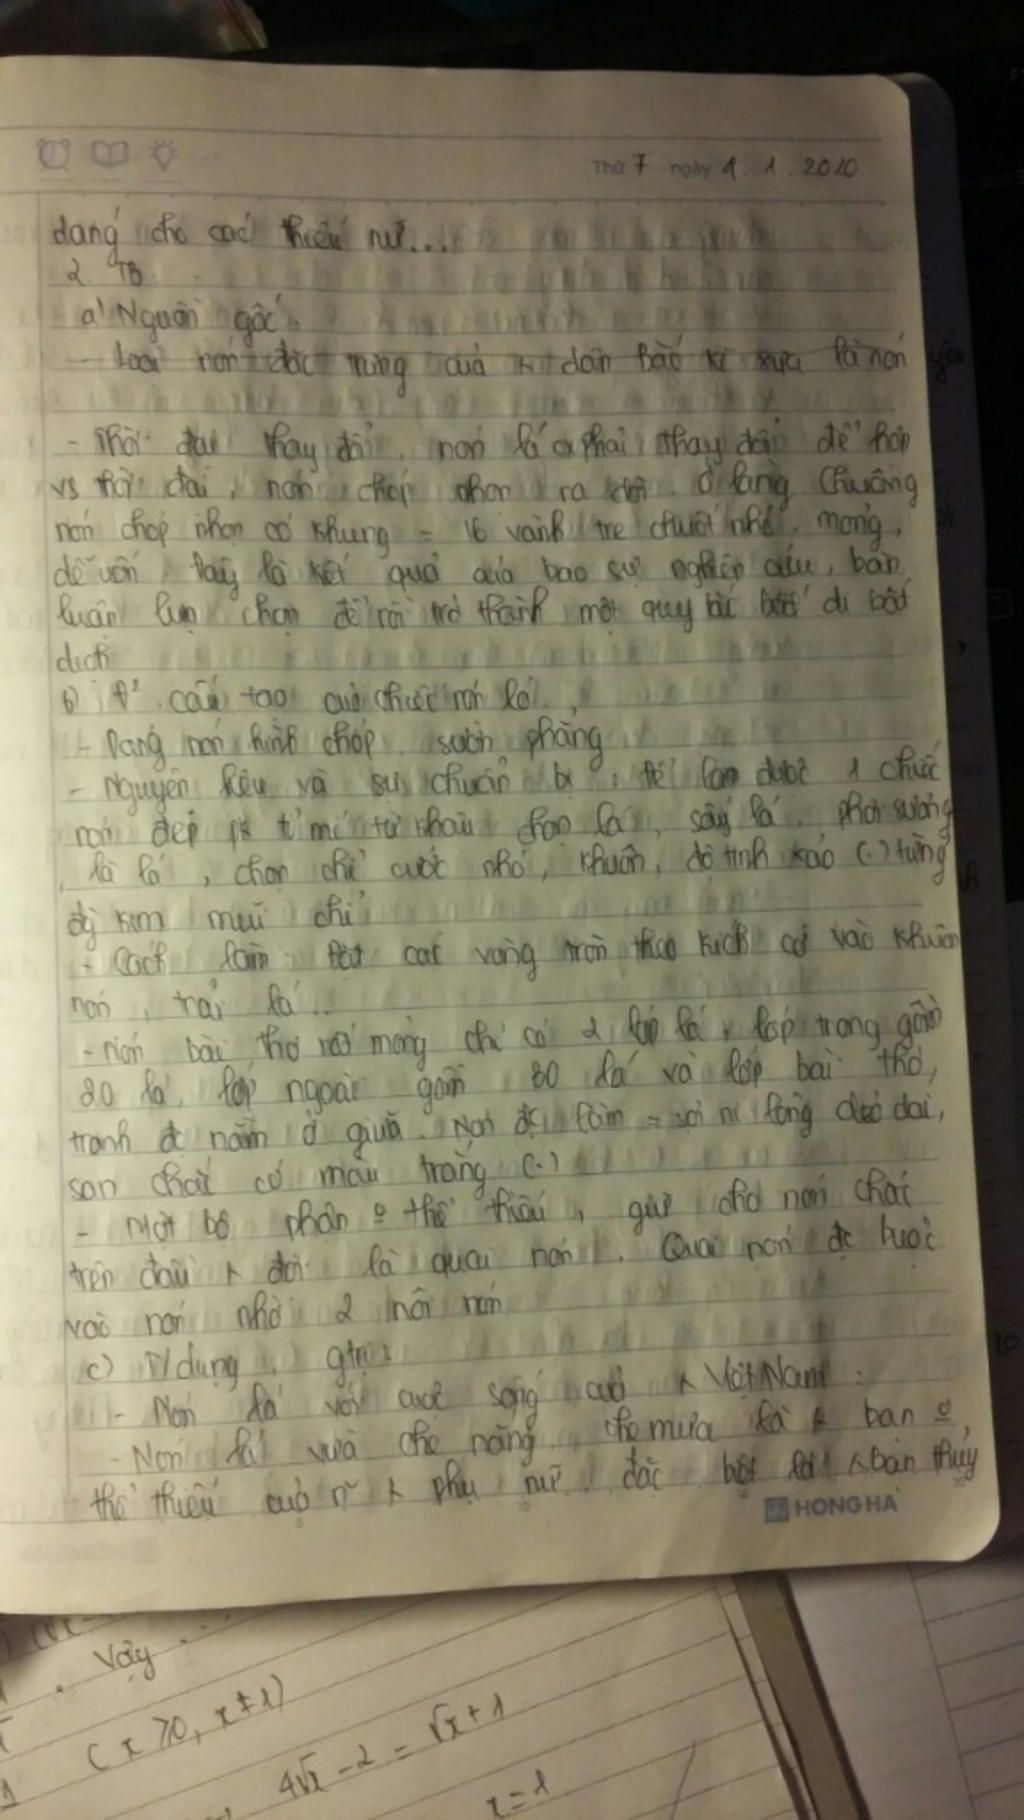 Thứ 7 ngày 4. 1. 2020
dáng cho các thiếu nữ...
2. TB
a) Nguồn gốc.
- Loại nón đặc trưng của dân Bắc kì xưa là nón
- Thời đại thay đổi, nón lá phải thay đổi để hợp
vs thời đại, nón chóp nhọn ra đời. Ở làng Chuông
nón chóp nhọn có khung = 16 vành tre chuốt nhỏ, mỏng,
dễ uốn. Đây là kết quả của bao sự nghiên cứu, bàn
luận lựa chọn để rồi trở thành một quy tắc bất di bất
dịch
b) cấu tạo của chiếc nón lá,
- Dạng nón hình chóp, sườn phẳng
- Nguyên liệu và sự chuẩn bị: Để làm được 1 chiếc
nón đẹp tỉ mỉ từ khâu chọn lá, sấy lá, phơi sương
, là lá, chọn chỉ cước nhỏ, khuôn, độ tinh xảo (.) từng
kim mũi chỉ
- Cách làm: Đặt các vòng tròn theo kích cỡ vào khuôn
nón, trải lá..
- Nón bài thơ rất mỏng chỉ có 2 lớp lá, lớp trong gồm
20 lá, lớp ngoài gồm 30 lá và lớp bài thơ,
tranh đc nằm ở giữa. Nón đc làm = sợi ni lông dẻo dai,
săn chắc có màu trắng (.)
- Một bộ phận thể thiếu, giữ cho nón chắc
trên đầu đội là quai nón. Quai nón đc buộc
vào nón nhờ 2 nôi nón
c) T/dụng, gtrị:
- Nón lá với cuộc sống của Việt Nam:
- Nón lá vừa che nắng, che mưa là bạn
thể thiếu của phụ nữ, đặc biệt là bạn thủy
HONG HA
Vậy
(x ⩾ 0, x ≠ 1)
4√x - 2 = √x + 1
x = 1